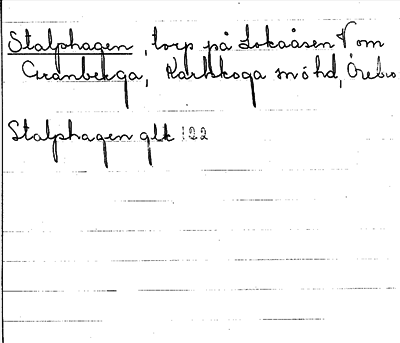 Stalphagen, torp på Lokaåsen V om
Granbekga, Karlskoga sn ó hd, Örebro
Stalphagen glk 122